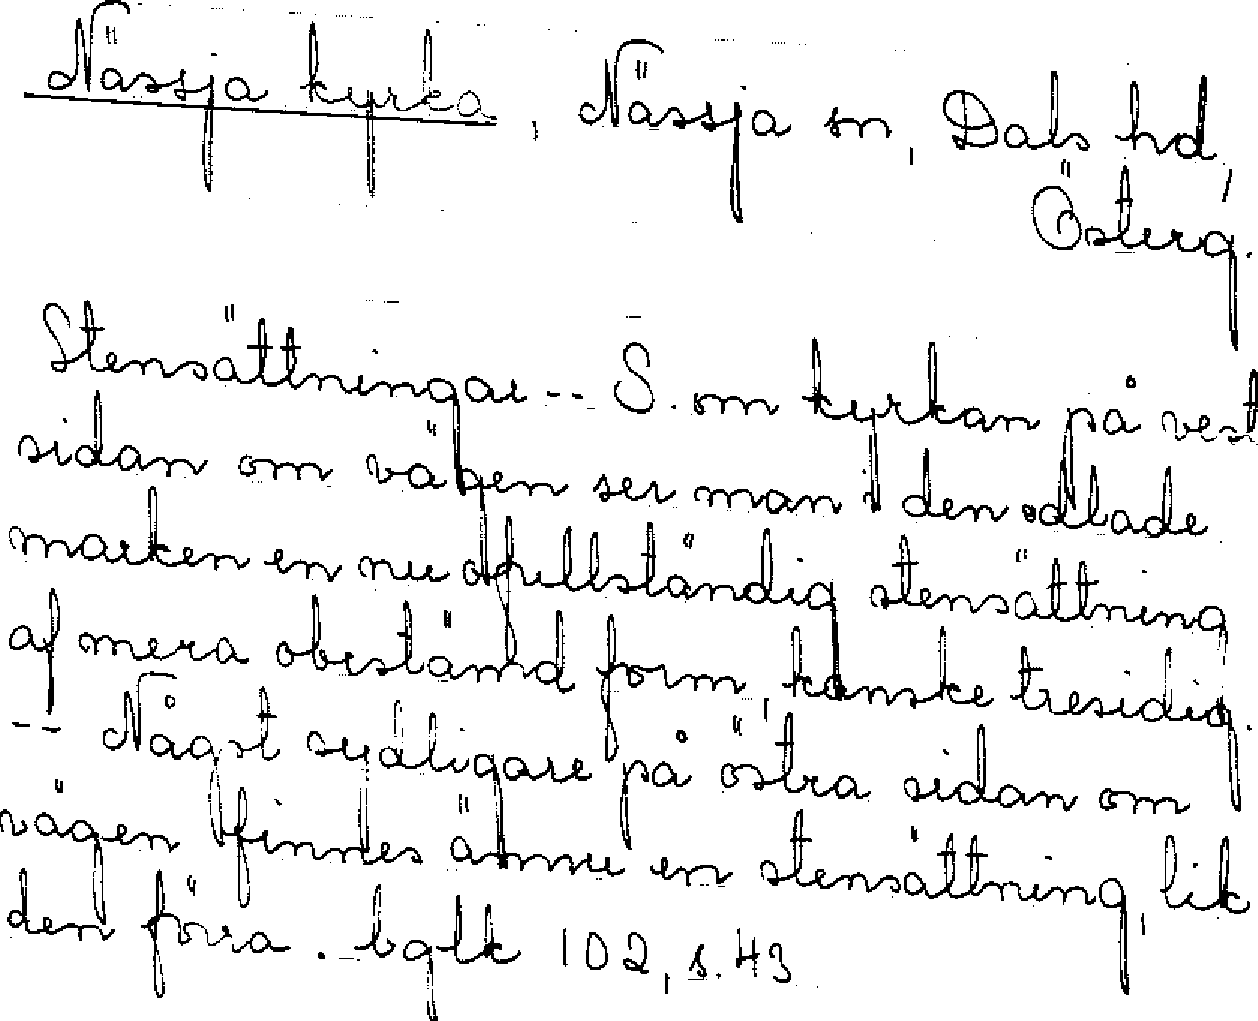 Nässja kyrka, Nässja sn, Dals hd,
Österg.
Stensättningar -- S. om kyrkan på vest
sidan om vägen ser man i den odlade
marken en nu ofullständig stensättning
af mera obestämd form, kanske tresidig.
-- Något sydligare på östra sidan om
vägen finnes ännu en stensättning, lik
den förra. - bglk 102, s. 43